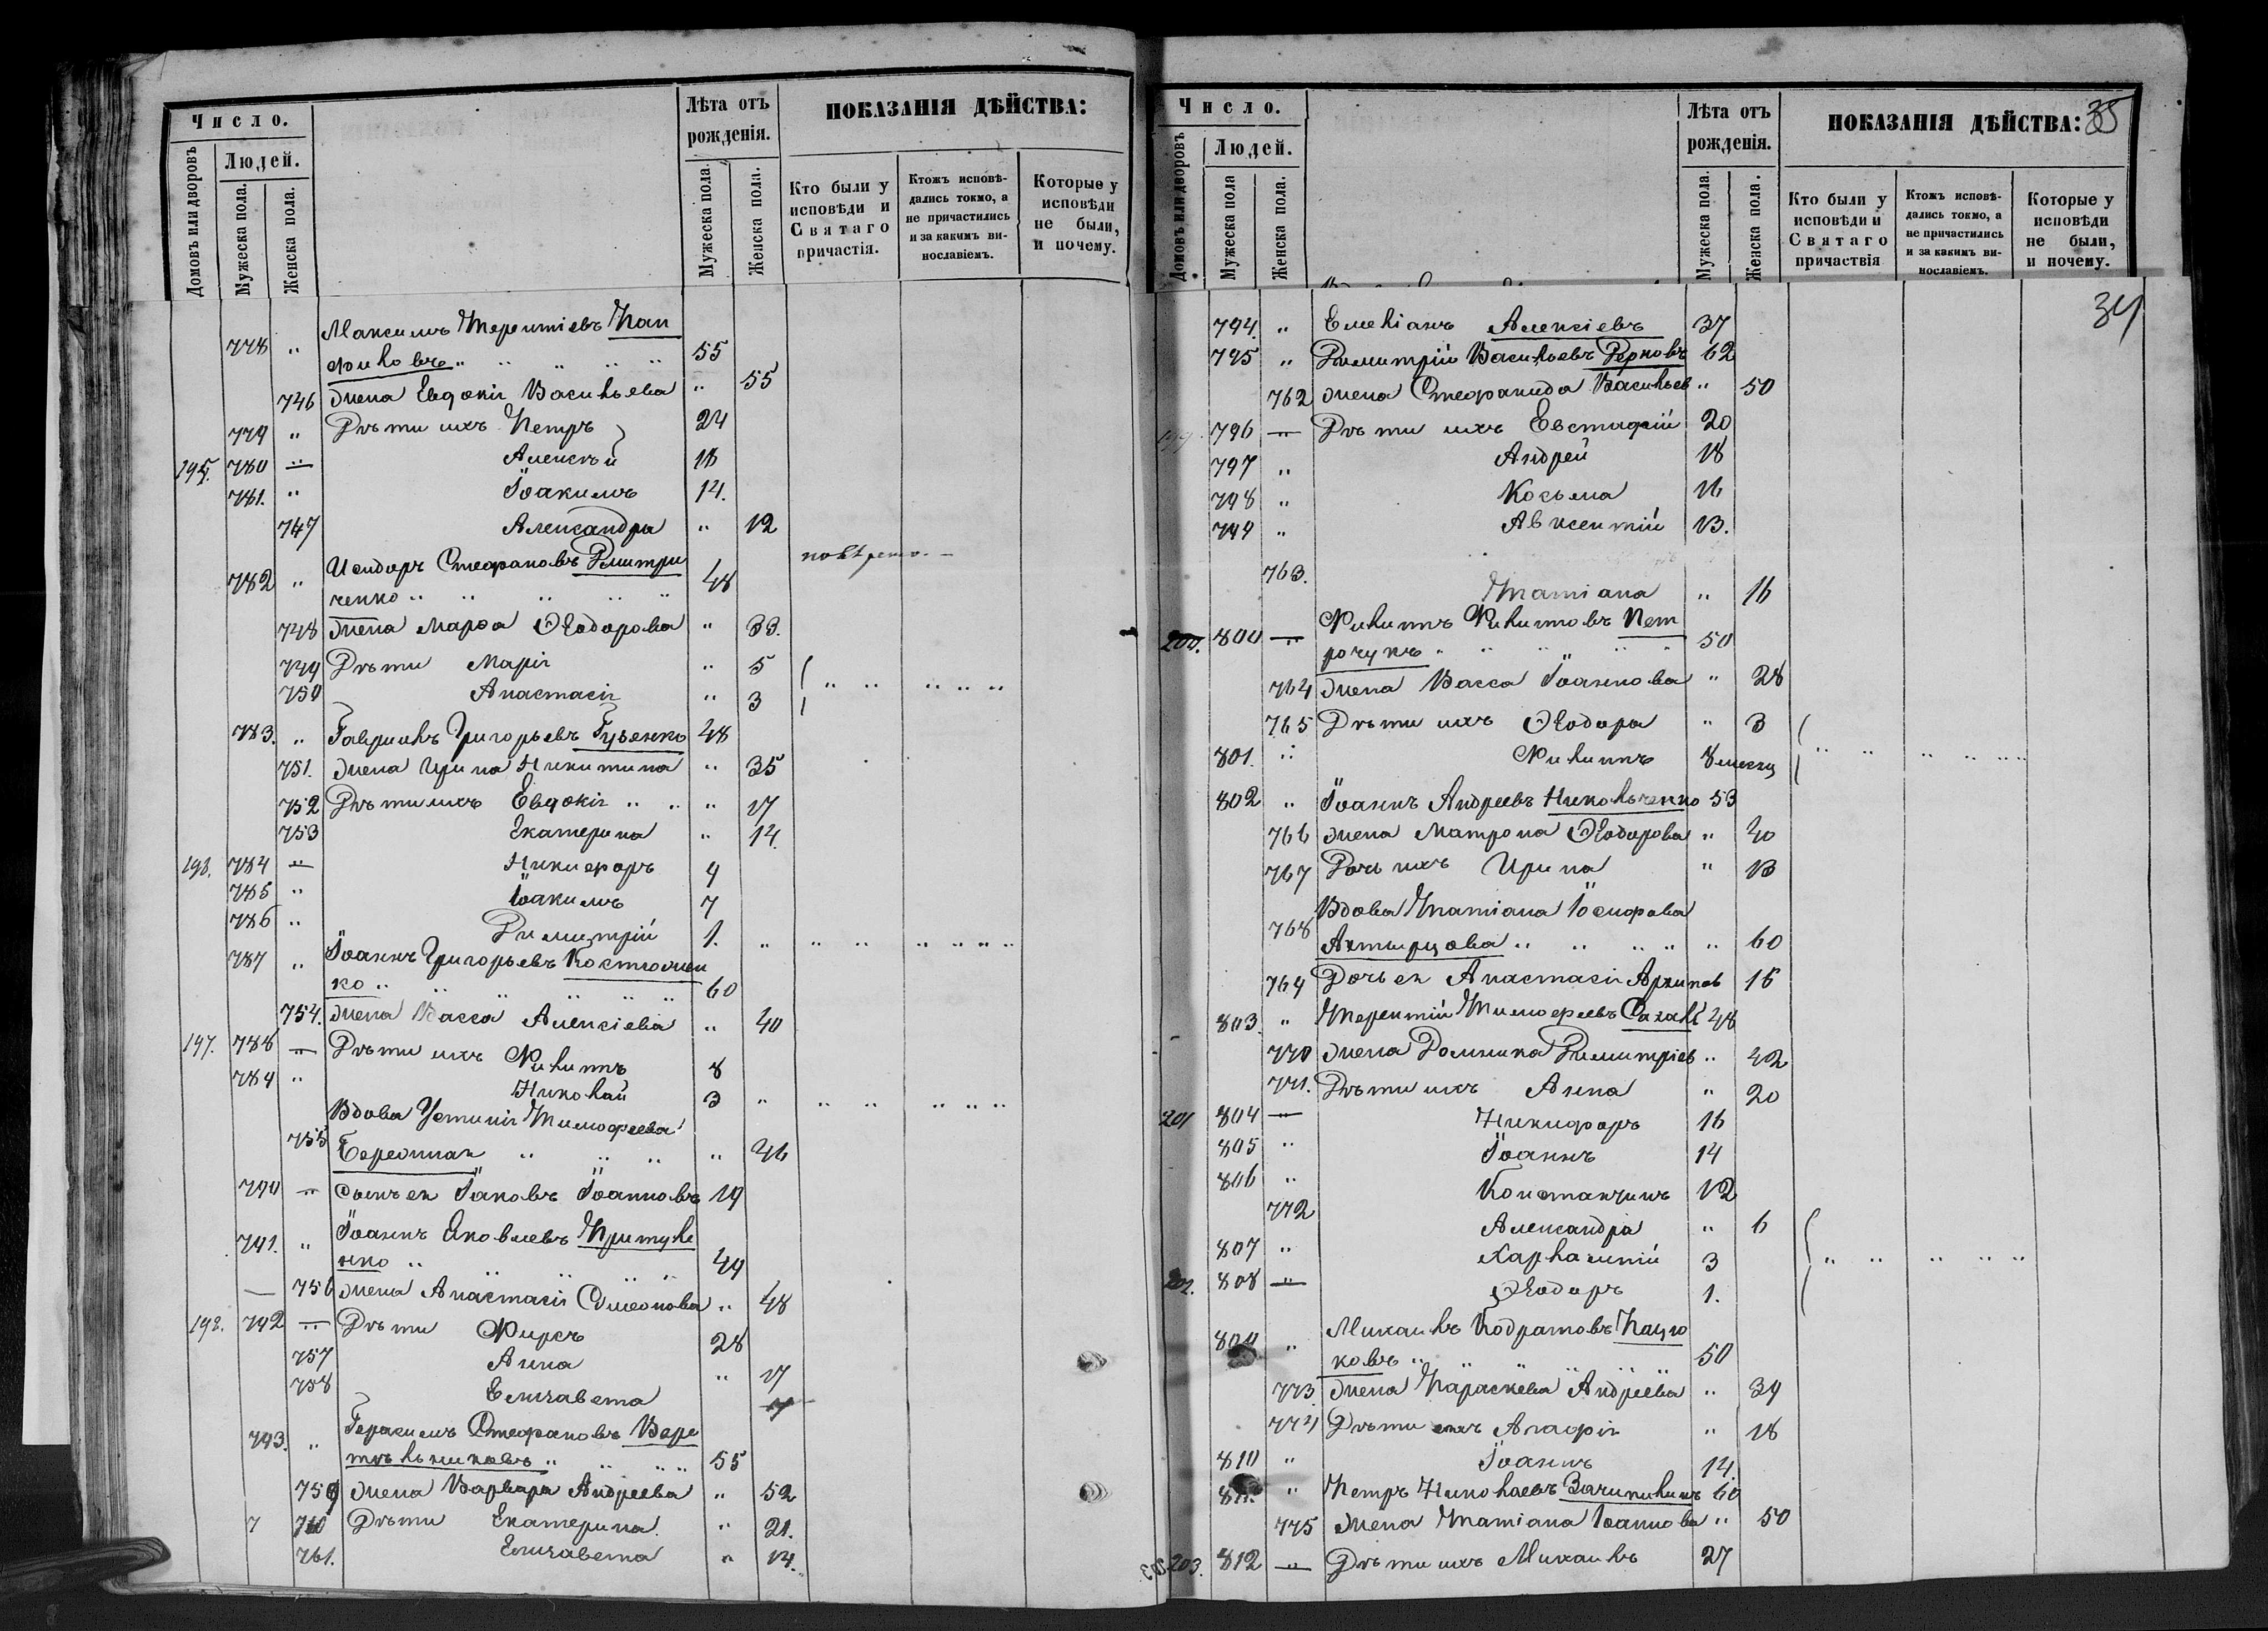 Число.
Домовъ или дворовъ
Людей.
Мужеска пола.
Женска пола.
Лѣта отъ рожденія.
Мужеска пола.
Женска пола.
ПОКАЗАНІЯ ДѢЙСТВА:
Кто были у исповѣди и Святаго причастія.
Ктожъ исповѣдались токмо, а не причастились и за какимъ винословіемъ.
Которые у исповѣди не были, и почему.
Максимъ Терентіевъ Пан
778 " филовъ " " " " " 55
746 жена Евдокія Васильева " 55
779 " Дѣти ихъ Петръ 24
195. 780 " Алексѣй 18
781. " Іоакимъ 14.
747 Александра " 12
Исидоръ Стефановъ Дмитри
782 " ченко " " " " " 48
748 жена Марфа Ѳеодорова " 33.
749 Дѣти Марія " 5
750 Анастасія " 3 " " " " "
783. " Гавріилъ Григорьевъ Гузенко 48
751. жена Ирина Никитина " 35
752 Дѣти ихъ Евдокія " " " 17
753 Екатерина " 14.
196. 784 " Никифоръ 9
785 " Іоакимъ 7
786 " Димитрій 1. " " " " " " "
787 " Іоаннъ Григорьевъ Костюжен
ко " " " " " " 60
754. жена Васса Алексіева " 40
197. 788 " Дѣти ихъ Филиппъ 8
789 " Николай 3 " " " " " "
Вдова Устинія Тимофеева
755 Бережная " " " " 46
790 " сынъ ея Іаковъ Іоанновъ 19
791. " Іоаннъ Яковлевъ Притуле
нко " " " " 49
756 жена Анастасія Симеонова " 48
198. 792 " Дѣти Фирсъ 28
757 Анна " 17
758 Елизавета 7
Герасимъ Стефановъ Вере
793. " тѣльниковъ " " " " 55
759 жена Варвара Андреева " 52
760 Дѣти Екатерина " 21.
761. Елизавета " 14.
Число.
Домовъ или дворовъ
Людей.
Мужеска пола
Женска пола.
Лѣта отъ рожденія.
Мужеска пола.
Женска пола.
ПОКАЗАНІЯ ДѢЙСТВА: 35
Кто были у исповѣди и Святаго причаствія
Ктожъ исповѣдались токмо, а не причастились и за какимъ винославіемъ.
Которые у исповѣди не были, и почему.
34
794. " Емеліанъ Алексіевъ 37
795 " Димитрій Васильевъ Церковъ 62
762 жена Стефанида Васильев " 50
199. 796 " Дѣти ихъ Евстафій 20
797 " Андрей 18
798 " Косьма 16
799 " Авксентій 13.
763. Татіана " 16
Филиппъ Филиповъ Пет
200. 800 " рочукъ " " " " " 50
764 жена Васса Іоаннова " 28
765 Дѣти ихъ Ѳеодора " 3
801. " Филиппъ 8 месяц " " " " " "
802 " Іоаннъ Андреевъ Никольченко 53
766 жена Матрона Ѳеодорова " 40
767 Дочь ихъ Ирина " 13
Вдова Татіана Іосифова
768 Ахтырцова " " " " " 60
769 Дочь ея Анастасія Архипов 15
803. " Терентій Тимофеевъ Сахай 48
770 жена Домника Димитріев " 42
771. Дѣти ихъ Анна " 20
201 804 " Никифоръ 16
805 " Іоаннъ 14
806 " Константинъ 12
772 Александра " 6
807 " Харлампій 3 " " " " "
202. 808 " Ѳеодоръ 1.
Михаилъ Кодратовъ Пацю
809 " ковъ " " " " " 50
773 жена Параскева Андреева " 39
774 Дѣти ихъ Агафія " 18
810 " Іоаннъ 14.
811. " Петръ Николаевъ Зачипилинъ 60
775 жена Татіана Іоаннова " 50
203. 812 " Дѣти ихъ Михаилъ 27